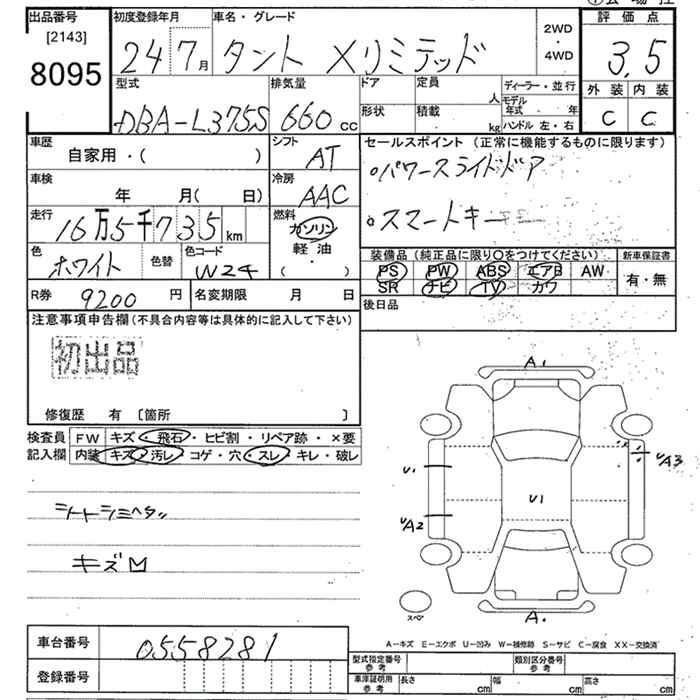 出品番号
[2143]
8095
初度登録年月
24 7月
車名・グレード
タント Xリミテッド
2WD
・
4WD
評価点
3.5
外装 内装
C C
型式
DBA-L375S
排気量
660 cc
ドア
形状
定員
人
積載
kg
ディーラー・並行
モデル年式 ・ 年
ハンドル 左・右
車歴
自家用・( )
シフト
AT
車検
年 月( 日)
冷房
AAC
走行
16万5千735 km
燃料
ガソリン
軽・油
( ・ )
色
ホワイト
色替
色コード
W24
R券
9200 円
名変期限 月 日
セールスポイント (正常に機能するものに限ります)
○パワースライドドア
○スマートキー
装備品 (純正品に限り○をつけてください)
PS PW ABS エアB AW
SR ナビ TV カワ
新車保証書
有・無
後日品
注意事項申告欄(不具合内容等は具体的に記入して下さい)
初出品
修復歴 有 〔箇所 〕
検査員記入欄
FW キズ・飛石・ヒビ割・リペア跡・×要
内装 キズ・汚レ・コゲ・穴・スレ・キレ・破レ
シートシミヘタリ
キズM
A1
U1
U1
UA2
UA3
A1
スペア
A-キズ E-エクボ U-凹み W-補修跡 S-サビ C-腐食 XX-交換済
車台番号
0558281
登録番号
型式指定番号 参考
類別区分番号 参考
車庫証明用 参考
長さ cm
幅 cm
高さ cm